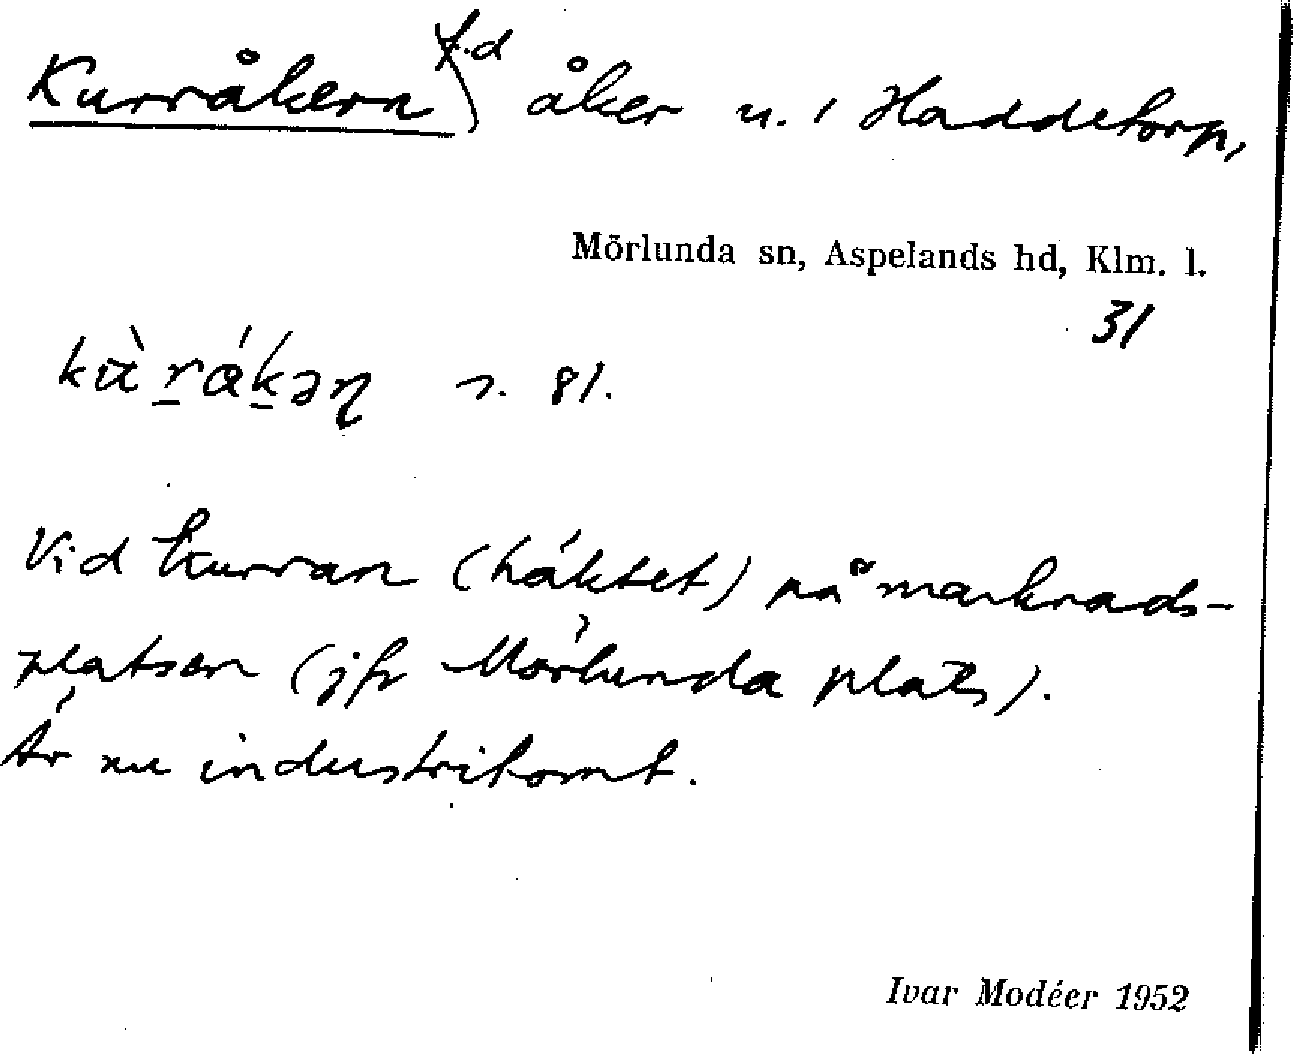 Kurråkern f.d åker u. i Haddetorp,
Mörlunda sn, Aspelands hd, Klm. l.
31
s. 81.
Vid kurran (häktet) på marknads-
platsen (jfr Mörlunda plats).
Är nu industritomt.
Ivar Modéer 1952